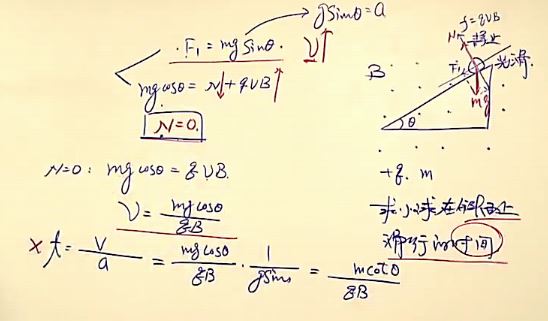 gsinθ=a
F₁=mg sinθ. υ↑
mg cosθ=N↓+qυB↑
N=0.
N=0: mg cosθ=qυB.
υ=mg cosθ/qB
×t=v/a=mg cosθ/qB·1/gsinθ=m cotθ/qB
f=qυB
N
F₁
光滑.
B
mg
θ
+q. m
求小球在斜面上
滑行的时间